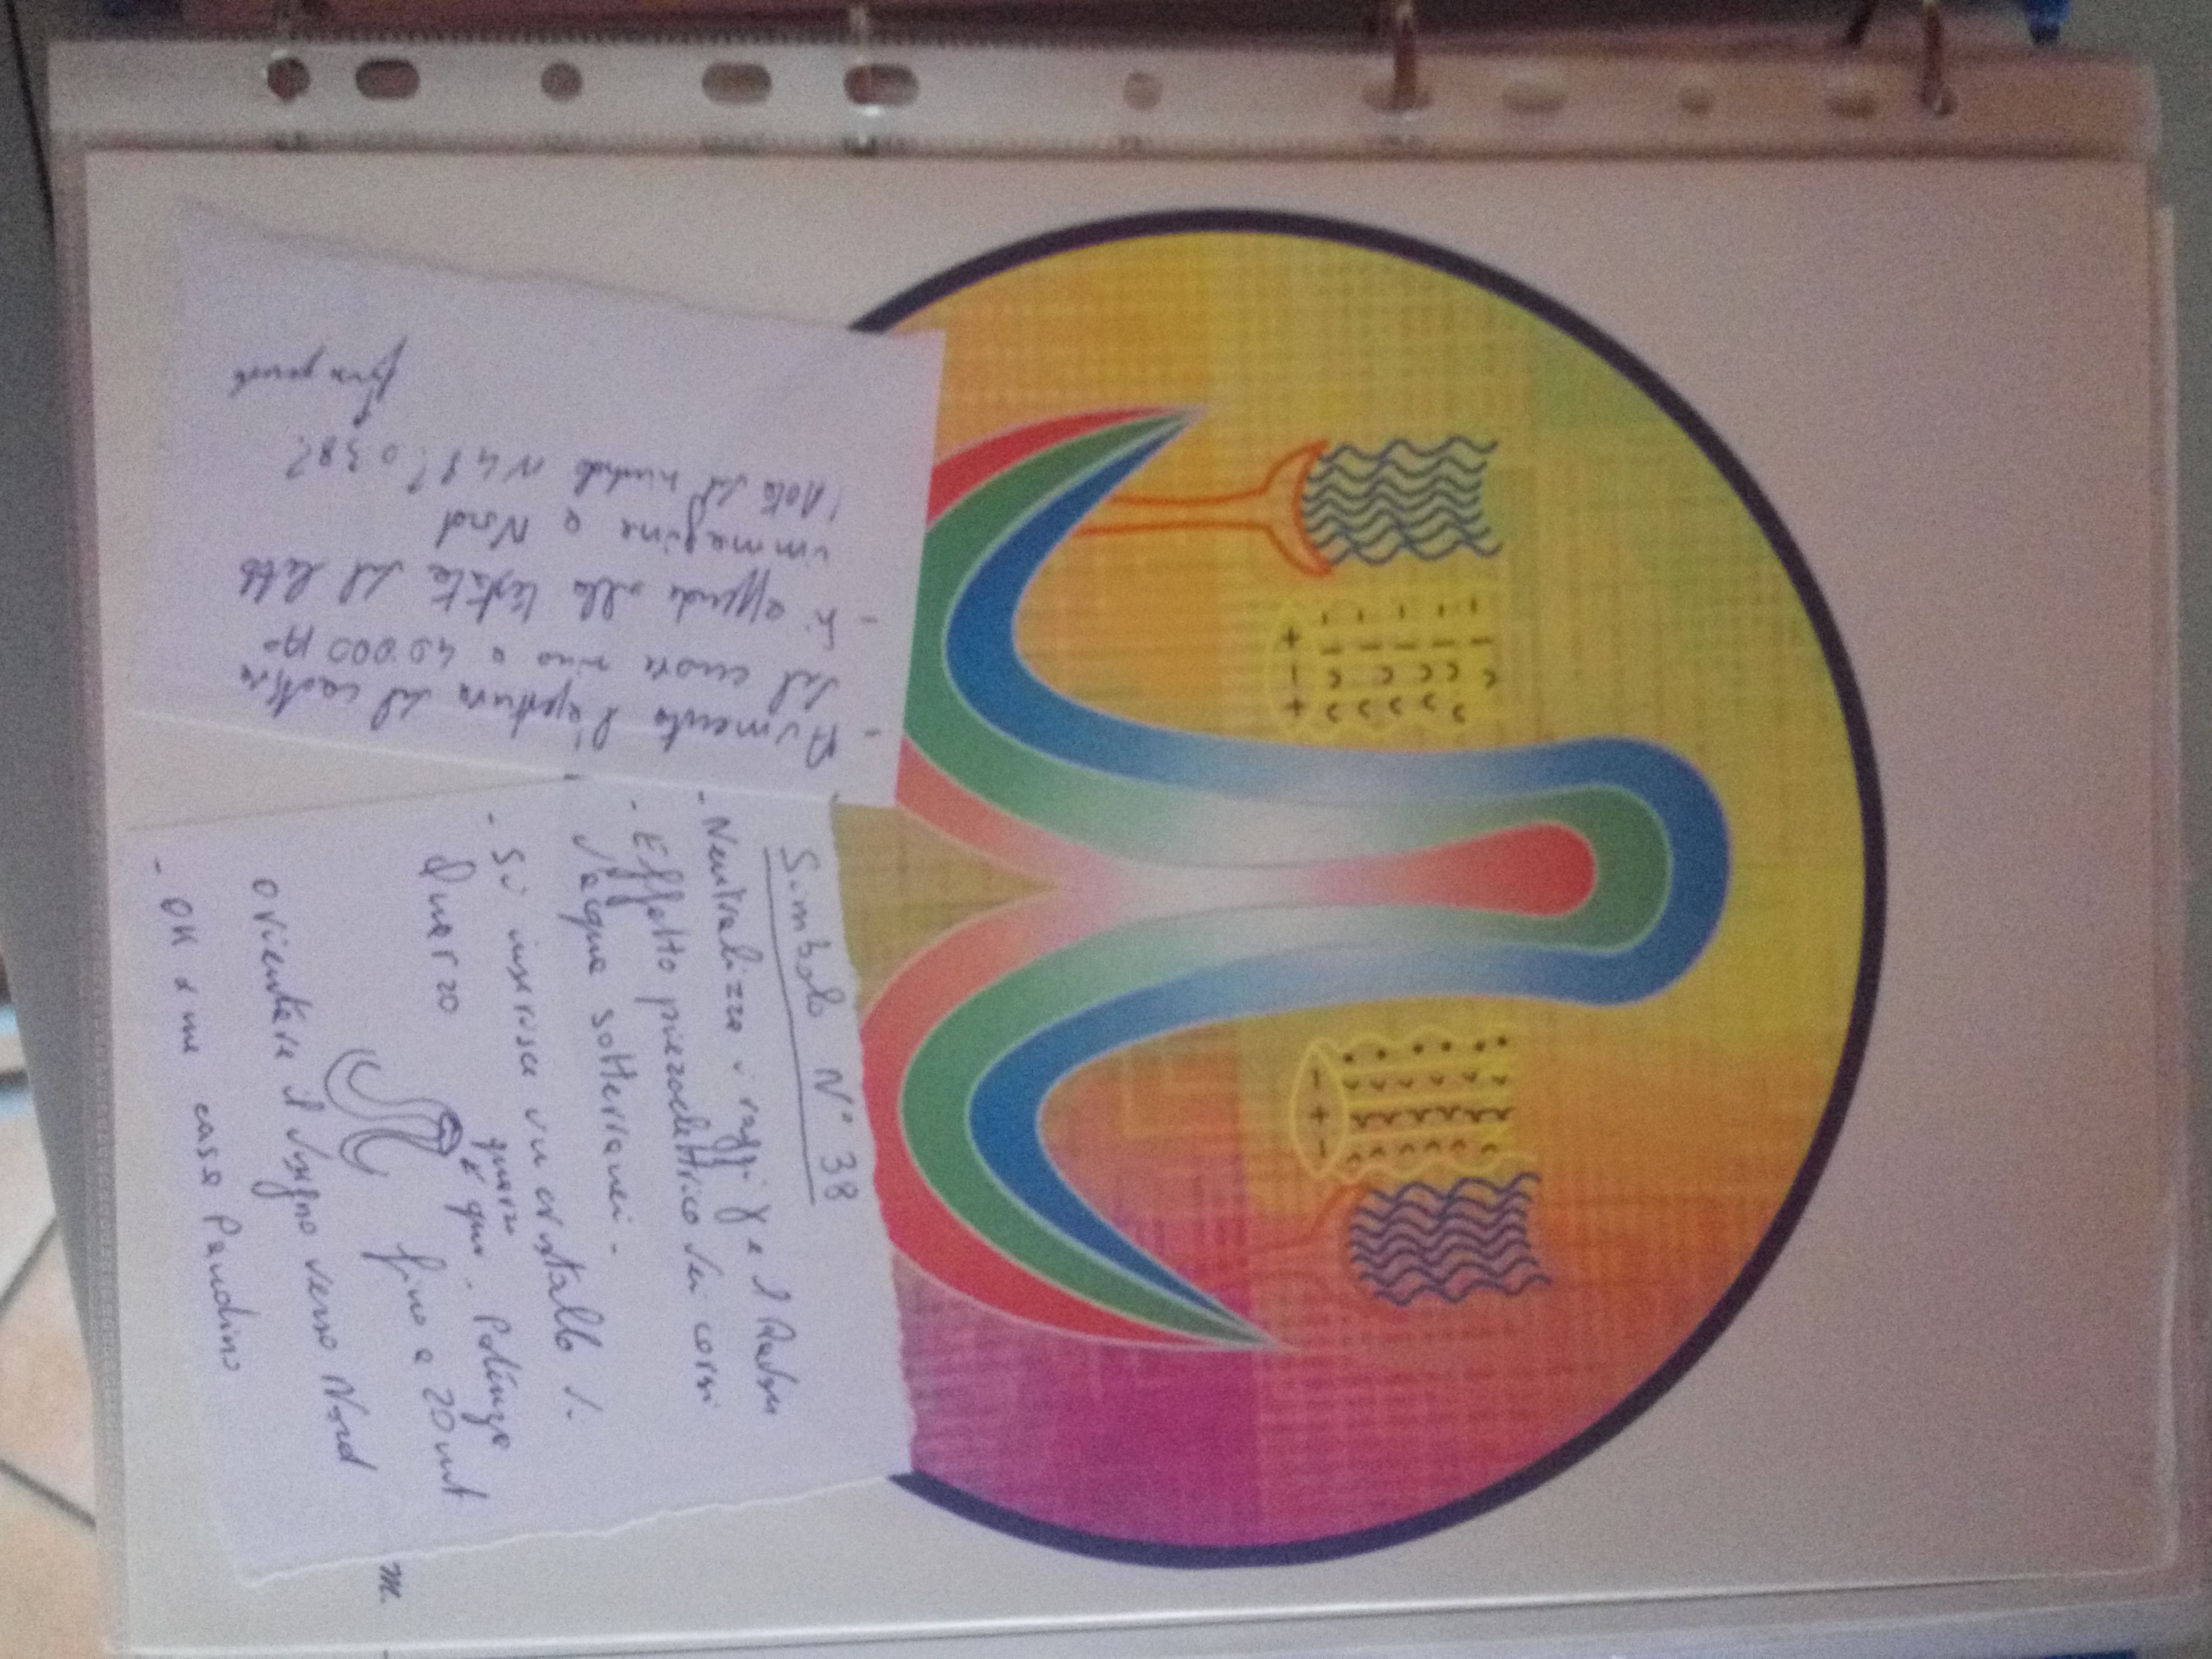 Simbolo N° 38
- Neutralizza i raggi γ e il Radon
- Effetto piezoelettrico dei corsi
d'acqua sotterranei -
- Si inserisce un cristallo di
Quarzo
quarzo
è qui. Potenza
fino a 20 mt
orientare il disegno verso Nord
- OK x me casa Pandino
m.
- Aumenta l'apertura del
del cuore fino a 40.000 A°
- Si appende alla testata del letto
immagine a Nord
(Nota del simbolo N 48? o 38?
+ - +
- + -